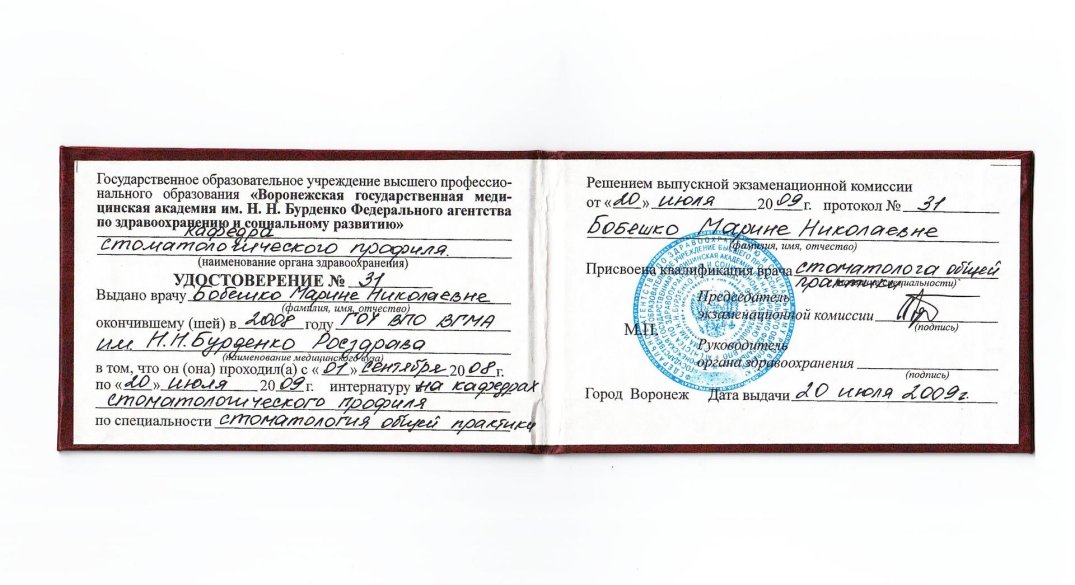 Государственное образовательное учреждение высшего профессио-
нального образования «Воронежская государственная меди-
цинская академия им. Н. Н. Бурденко Федерального агентства
по здравоохранению и социальному развитию»
кафедра
стоматологического профиля.
(наименование органа здравоохранения)
УДОСТОВЕРЕНИЕ № 31
Выдано врачу Бобешко Марине Николаевне
(фамилия, имя, отчество)
окончившему (шей) в 2008 году ГОУ ВПО ВГМА
им. Н.Н.Бурденко Росздрава
(наименование медицинского вуза)
в том, что он (она) проходил(а) с «01» сентября 2008 г.
по «20» июля 2009 г. интернатуру на кафедрах
стоматологического профиля
по специальности стоматология общей практики
Решением выпускной экзаменационной комиссии
от «20» июля 2009 г. протокол № 31
Бобешко Марине Николаевне
(фамилия, имя, отчество)
Присвоена квалификация врача стоматолога общей
практики
Председатель
экзаменационной комиссии
(подпись)
М.П.
Руководитель
органа здравоохранения
(подпись)
Город Воронеж Дата выдачи 20 июля 2009г.